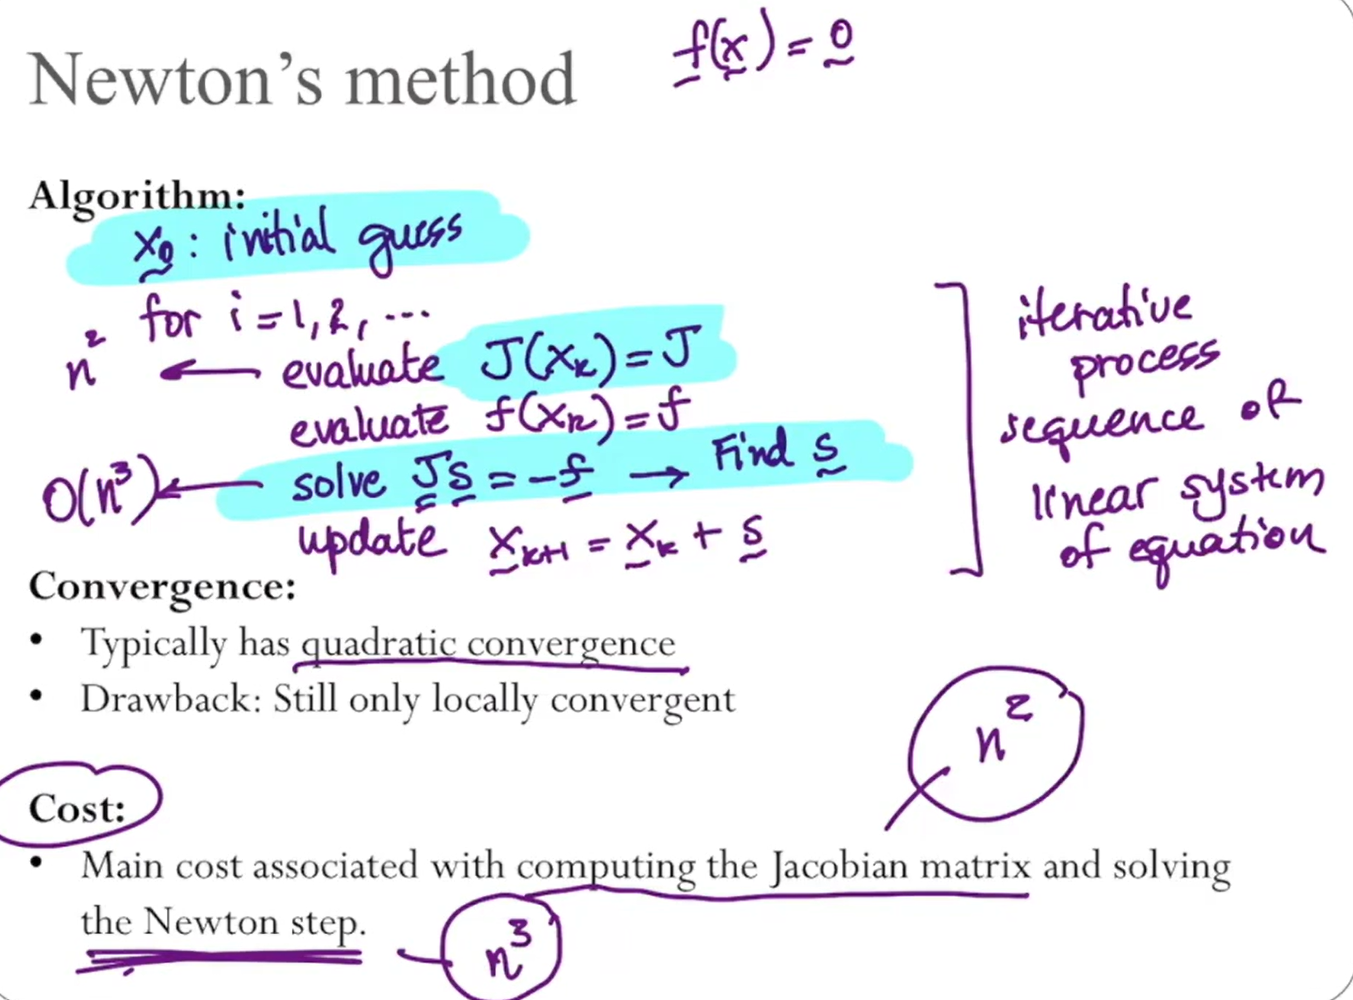 Newton's method
f(x) = 0
Algorithm:
x₀ : initial guess
for i = 1, 2, ...
n² ← evaluate J(xₖ) = J
evaluate f(xₖ) = f
O(n³) ← solve J s = -f → Find s
update xₖ₊₁ = xₖ + s
iterative
process
sequence of
linear system
of equation
Convergence:
• Typically has quadratic convergence
• Drawback: Still only locally convergent
n²
Cost:
• Main cost associated with computing the Jacobian matrix and solving
the Newton step.
n³